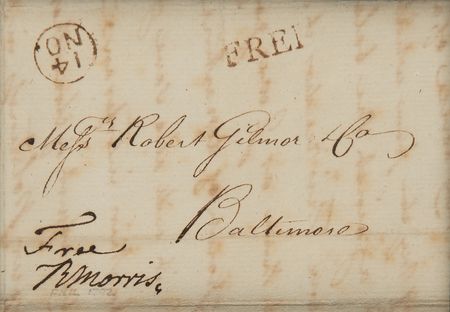 14
NO
FREE
Messrs Robert Gilmor & Co
Baltimore
Free
R Morris